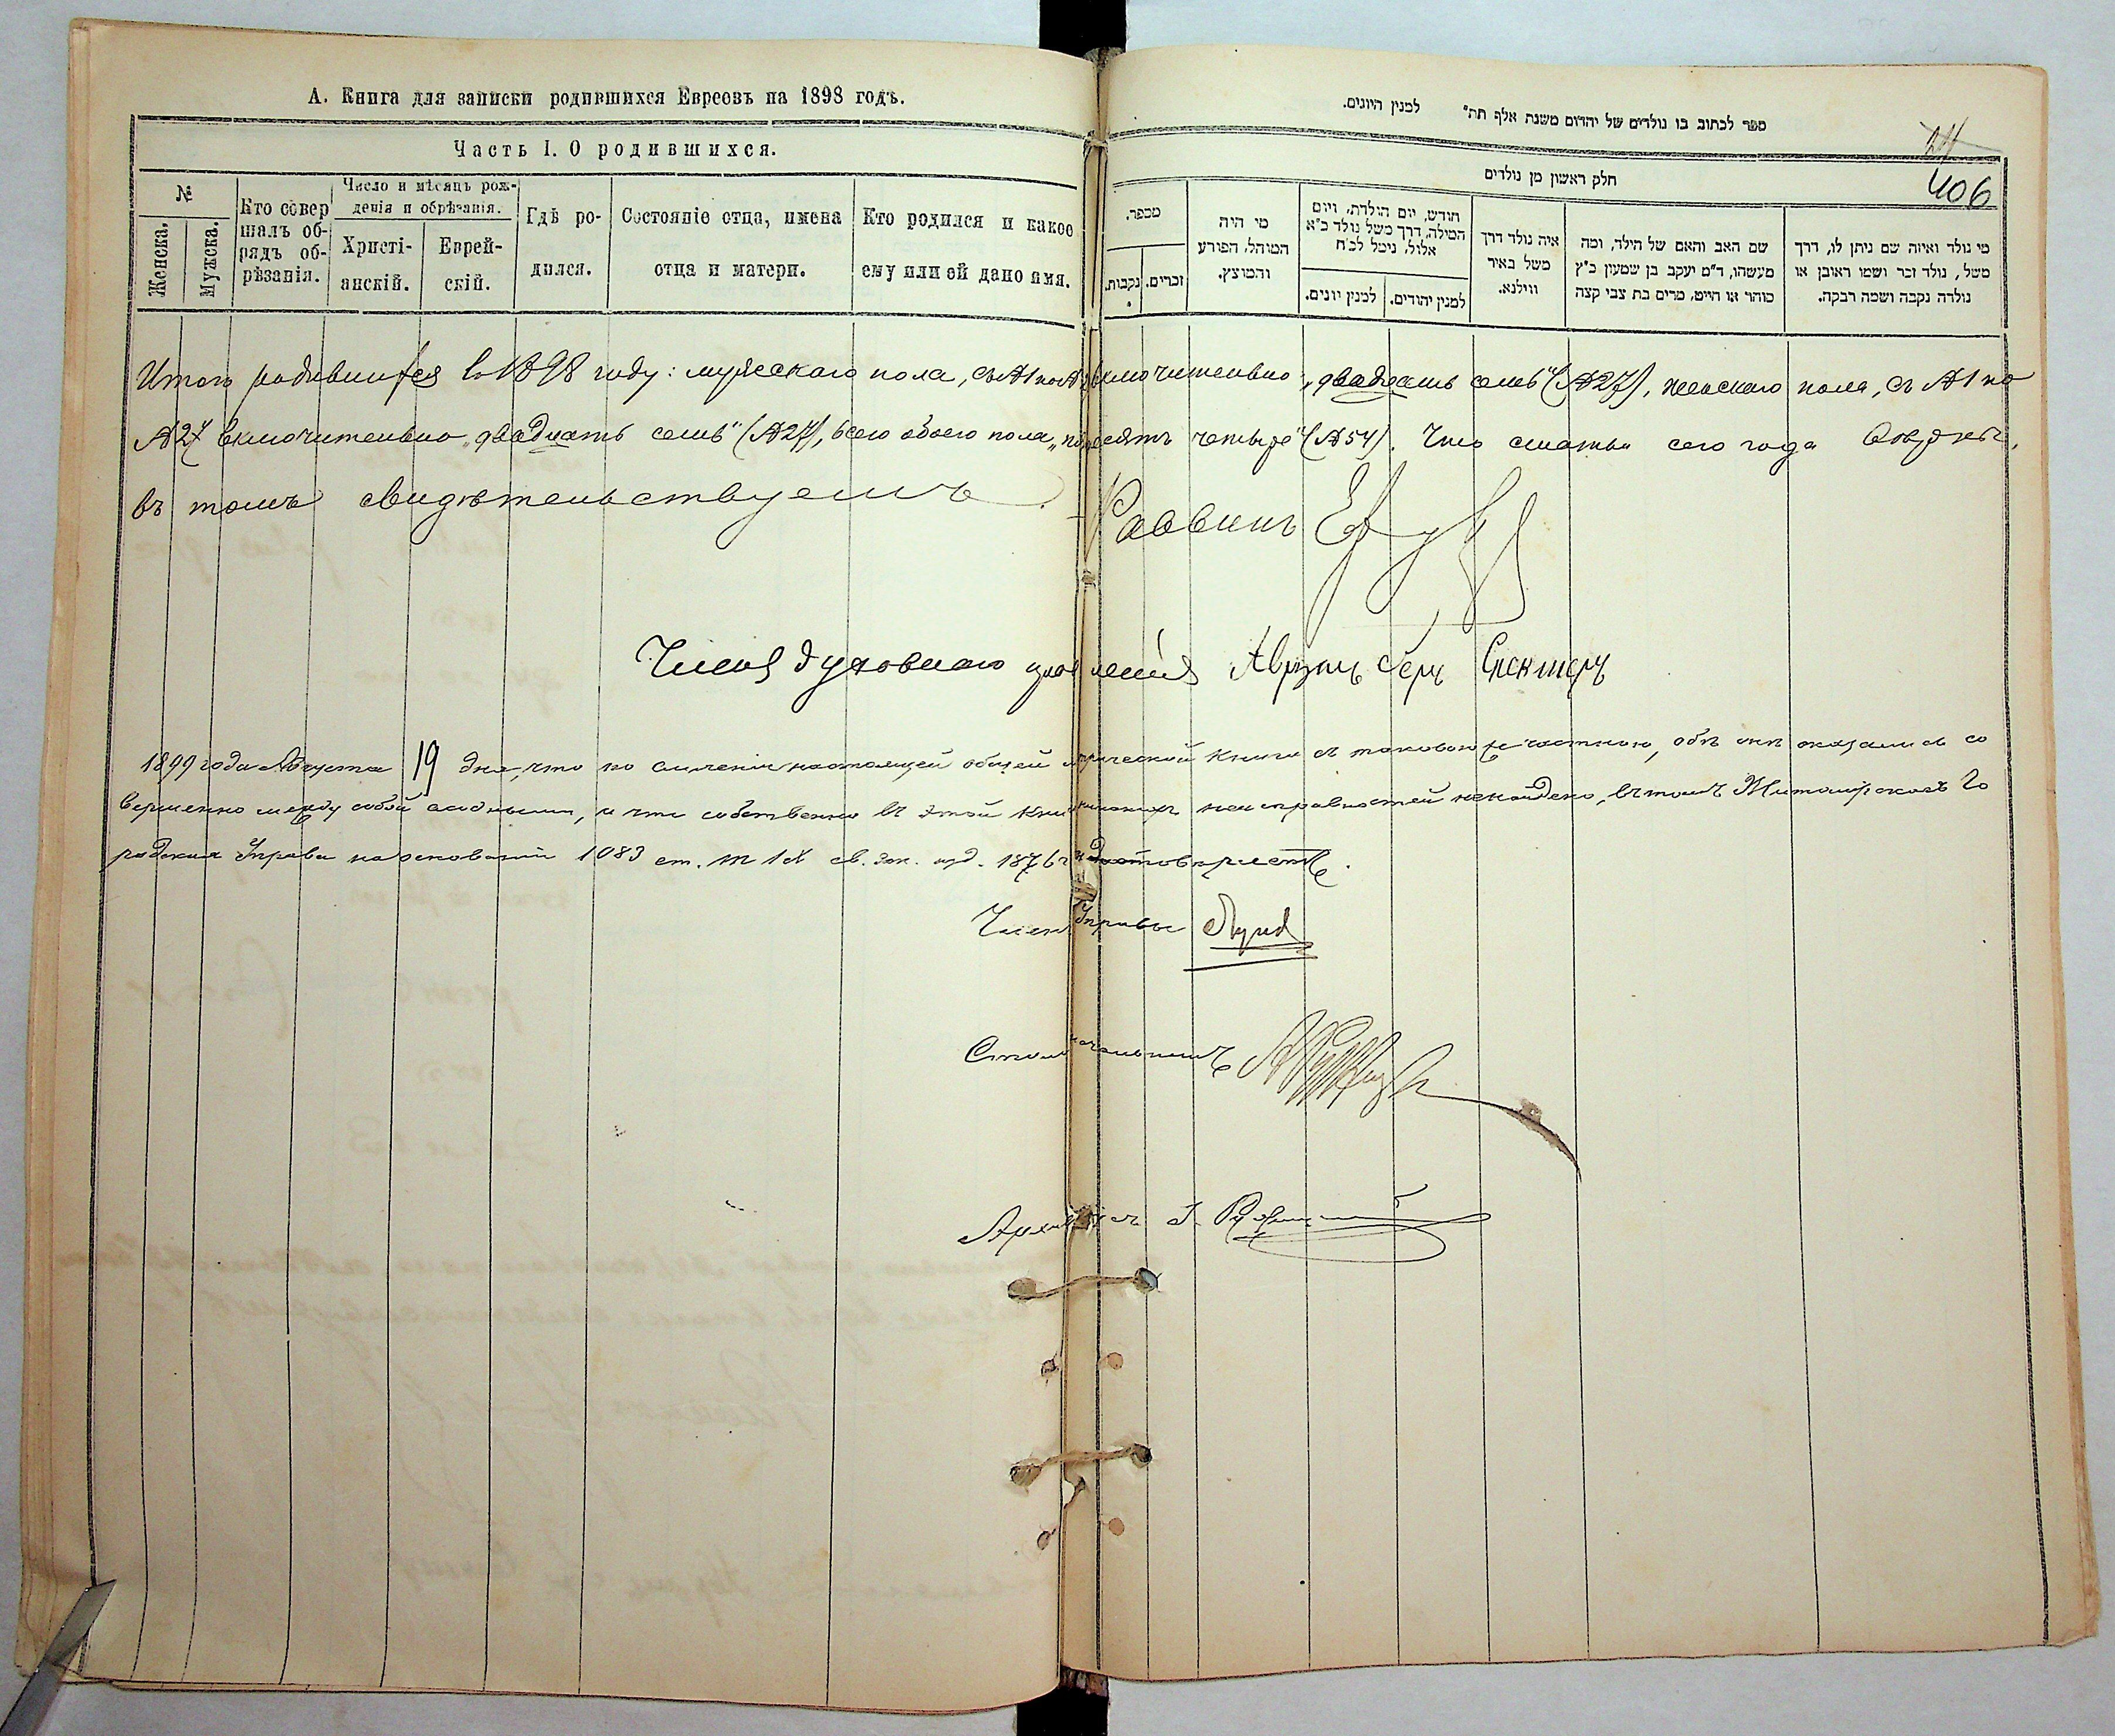 А. Книга для записки родившихся Евреовъ на 1898 годъ.
Часть I. О родившихся.
№
Женска.
Мужска.
Кто совер
шалъ об-
рядъ об-
рѣзанія.
Число и мѣсяцъ рож-
денія и обрѣзанія.
Христі-
анскій.
Еврей-
скій.
Гдѣ ро-
дился.
Состояніе отца, имена
отца и матери.
Кто родился и какое
ему или ей дано имя.
ספר לכתוב בו נולדים של יהדום משנת אלף תת״ למנין היונים.
24
406
חלק ראשון מן נולדים
מספר.
נקבות.
זכרים.
מי היה
המוהל, הפורע
והמוצץ.
חודש, יום הולדת, ויום
המילה, דרך משל נולד כ״א
אלול, נימל לכ״ח
למנין יונים.
למנין יהודים.
איה נולד דרך
משל באיר
ווילנא.
שם האב והאם של הילד, ומה
מעשהו, ד״מ יעקב בן שמעון כ״ץ
סוהר או חייט, מרים בת צבי קצה
מי נולד ואיזה שם ניתן לו, דרך
משל, נולד זכר ושמו ראובן או
נולדה נקבה ושמה רבקה.
Итого родившихся въ 1898 году: мужескаго пола, съ №1 по № включительно „двадцать семь" (№27), женскаго пола, съ №1 по
№27 включительно „двадцать семь" (№27), всего обоего пола „пятдесятъ четыре" (№54). Что статьи сего года
въ томъ свидѣтельствуемъ. Раввинъ
Членъ духовнаго правленія Аврумъ Беръ Спекторъ
1899 года Августа 19 дня, что по сличеніи настоящей общей метрической книги съ таковою же частною, обѣ онѣ оказались со
вершенно между собой сходными, и что собственно въ этой книгѣ никакихъ неисправностей ненайдено, въ томъ Житомірская Го
родская Управа на основаніи 1083 ст. т IX св. зак. изд. 1876 г удостовѣряетъ.
Членъ Управы
Столоначальникъ
Архиваріусъ